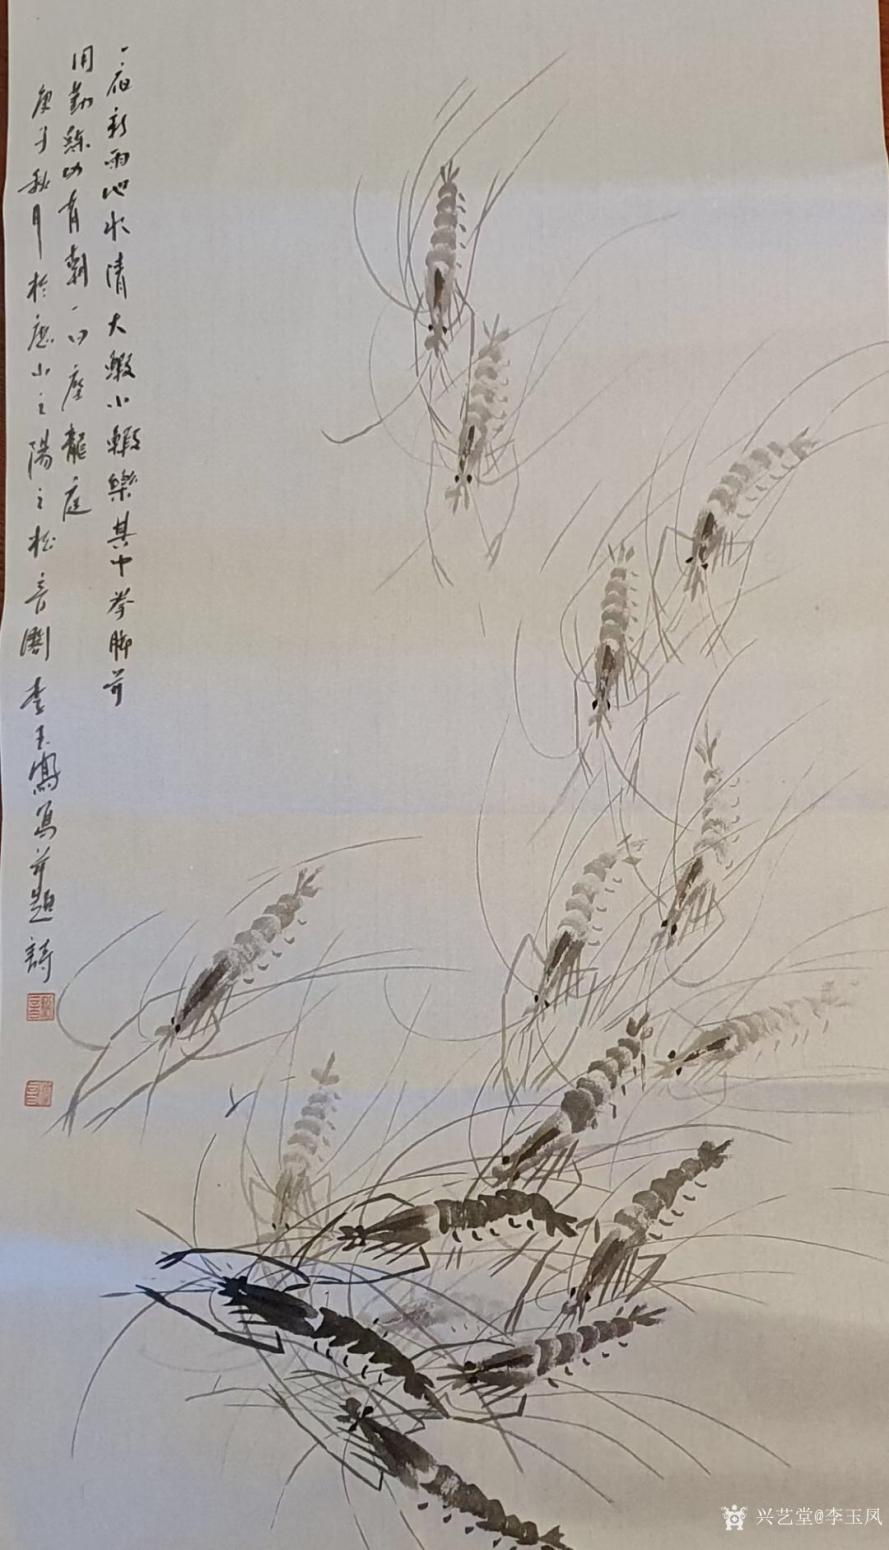 一宿新雨池水清大蝦小蝦樂其中拳脚并
用勤練功有朝一日座龍庭
庚子秋月於唐山之陽之松音閣李玉鳳寫并題詩
兴艺堂@李玉凤